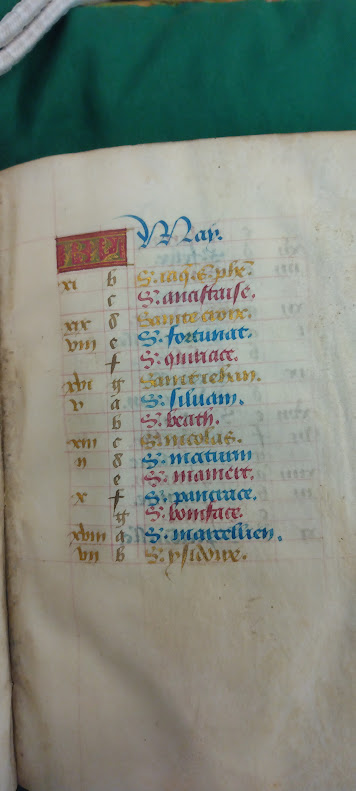 KL May.
xi b S. iaq. s. phe.
c S. anastaise.
xix d Sainte croix.
viii e S. fortunat.
f S. quiriace.
xvi g Saint iehan.
v a S. siluain.
b S. beath.
xiii c S. nicolas.
ii d S. maturin
e S. mamert.
x f S. pancrace.
g S. boniface.
xviii a S. marcellien.
vii b S. ysidoire.